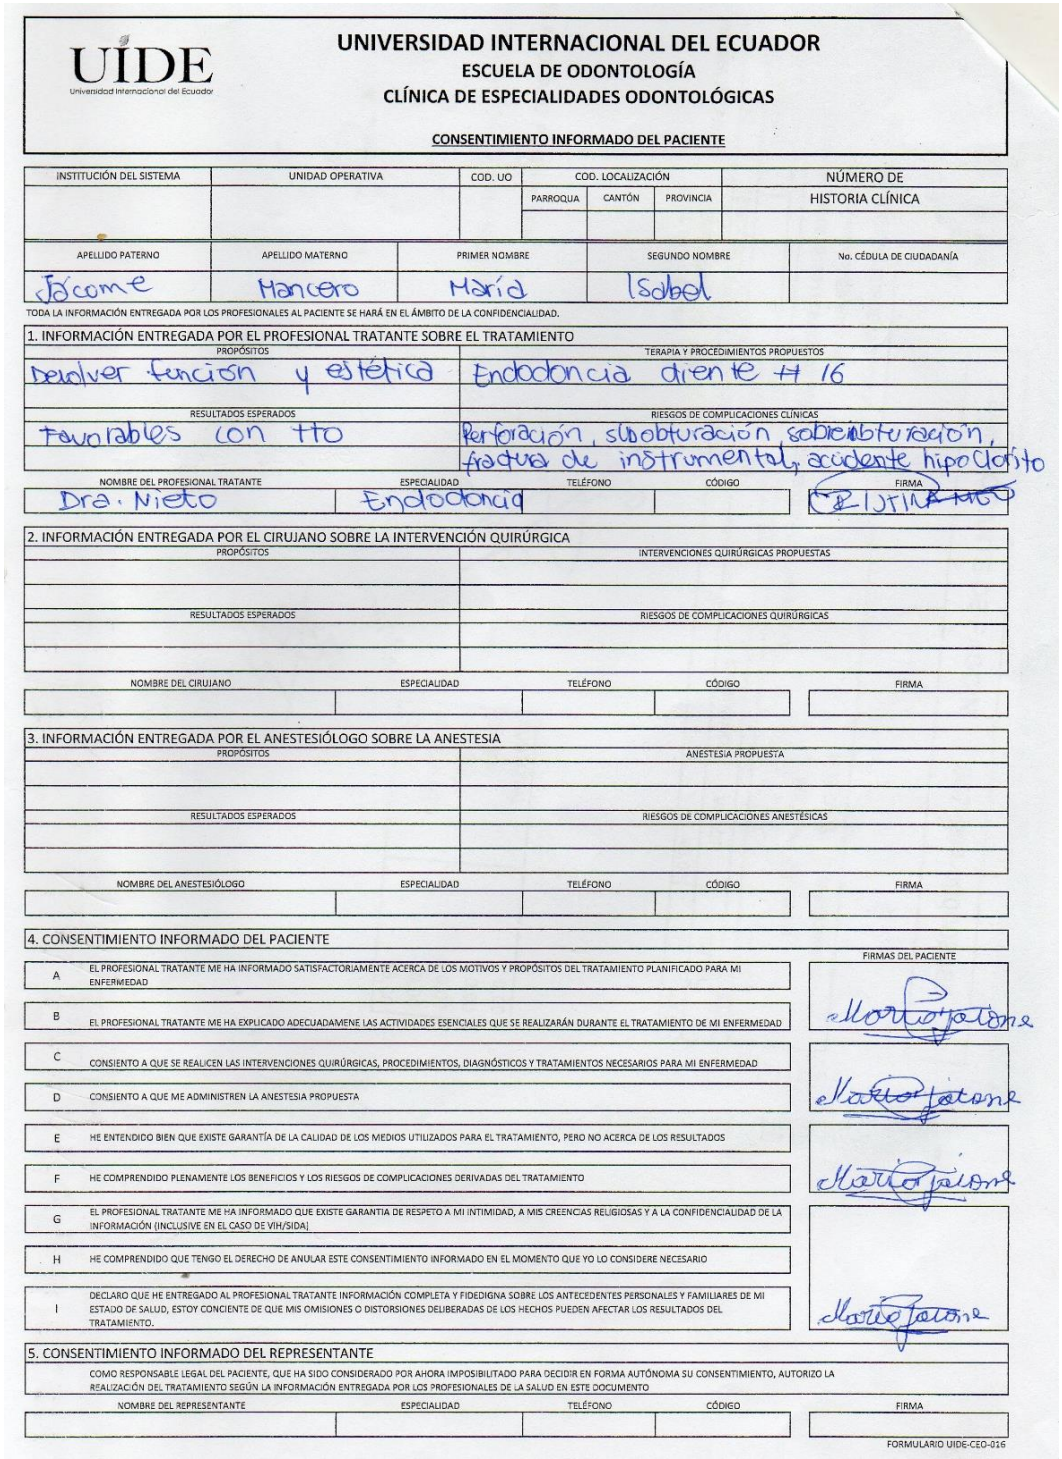 UIDE
Universidad Internacional del Ecuador
UNIVERSIDAD INTERNACIONAL DEL ECUADOR
ESCUELA DE ODONTOLOGÍA
CLÍNICA DE ESPECIALIDADES ODONTOLÓGICAS
CONSENTIMIENTO INFORMADO DEL PACIENTE
INSTITUCIÓN DEL SISTEMA UNIDAD OPERATIVA COD. UO COD. LOCALIZACIÓN NÚMERO DE
PARROQUA CANTÓN PROVINCIA HISTORIA CLÍNICA
APELLIDO PATERNO APELLIDO MATERNO PRIMER NOMBRE SEGUNDO NOMBRE No. CÉDULA DE CIUDADANÍA
Jácome Mancero María Isabel
TODA LA INFORMACIÓN ENTREGADA POR LOS PROFESIONALES AL PACIENTE SE HARÁ EN EL ÁMBITO DE LA CONFIDENCIALIDAD.
1. INFORMACIÓN ENTREGADA POR EL PROFESIONAL TRATANTE SOBRE EL TRATAMIENTO
PROPÓSITOS TERAPIA Y PROCEDIMIENTOS PROPUESTOS
Devolver función y estética Endodoncia diente # 16
RESULTADOS ESPERADOS RIESGOS DE COMPLICACIONES CLÍNICAS
Favorables con tto Perforación, subobturación, sobreobturación,
fractura de instrumental, accidente hipoclorito
NOMBRE DEL PROFESIONAL TRATANTE ESPECIALIDAD TELÉFONO CÓDIGO FIRMA
Dra. Nieto Endodoncia
2. INFORMACIÓN ENTREGADA POR EL CIRUJANO SOBRE LA INTERVENCIÓN QUIRÚRGICA
PROPÓSITOS INTERVENCIONES QUIRÚRGICAS PROPUESTAS
RESULTADOS ESPERADOS RIESGOS DE COMPLICACIONES QUIRÚRGICAS
NOMBRE DEL CIRUJANO ESPECIALIDAD TELÉFONO CÓDIGO FIRMA
3. INFORMACIÓN ENTREGADA POR EL ANESTESIÓLOGO SOBRE LA ANESTESIA
PROPÓSITOS ANESTESIA PROPUESTA
RESULTADOS ESPERADOS RIESGOS DE COMPLICACIONES ANESTÉSICAS
NOMBRE DEL ANESTESIÓLOGO ESPECIALIDAD TELÉFONO CÓDIGO FIRMA
4. CONSENTIMIENTO INFORMADO DEL PACIENTE
FIRMAS DEL PACIENTE
A EL PROFESIONAL TRATANTE ME HA INFORMADO SATISFACTORIAMENTE ACERCA DE LOS MOTIVOS Y PROPÓSITOS DEL TRATAMIENTO PLANIFICADO PARA MI
ENFERMEDAD
B EL PROFESIONAL TRATANTE ME HA EXPLICADO ADECUADAMENE LAS ACTIVIDADES ESENCIALES QUE SE REALIZARÁN DURANTE EL TRATAMIENTO DE MI ENFERMEDAD
C CONSIENTO A QUE SE REALICEN LAS INTERVENCIONES QUIRÚRGICAS, PROCEDIMIENTOS, DIAGNÓSTICOS Y TRATAMIENTOS NECESARIOS PARA MI ENFERMEDAD
D CONSIENTO A QUE ME ADMINISTREN LA ANESTESIA PROPUESTA
E HE ENTENDIDO BIEN QUE EXISTE GARANTÍA DE LA CALIDAD DE LOS MEDIOS UTILIZADOS PARA EL TRATAMIENTO, PERO NO ACERCA DE LOS RESULTADOS
F HE COMPRENDIDO PLENAMENTE LOS BENEFICIOS Y LOS RIESGOS DE COMPLICACIONES DERIVADAS DEL TRATAMIENTO
G EL PROFESIONAL TRATANTE ME HA INFORMADO QUE EXISTE GARANTIA DE RESPETO A MI INTIMIDAD, A MIS CREENCIAS RELIGIOSAS Y A LA CONFIDENCIALIDAD DE LA
INFORMACIÓN (INCLUSIVE EN EL CASO DE VIH/SIDA)
H HE COMPRENDIDO QUE TENGO EL DERECHO DE ANULAR ESTE CONSENTIMIENTO INFORMADO EN EL MOMENTO QUE YO LO CONSIDERE NECESARIO
I DECLARO QUE HE ENTREGADO AL PROFESIONAL TRATANTE INFORMACIÓN COMPLETA Y FIDEDIGNA SOBRE LOS ANTECEDENTES PERSONALES Y FAMILIARES DE MI
ESTADO DE SALUD, ESTOY CONCIENTE DE QUE MIS OMISIONES O DISTORSIONES DELIBERADAS DE LOS HECHOS PUEDEN AFECTAR LOS RESULTADOS DEL
TRATAMIENTO.
5. CONSENTIMIENTO INFORMADO DEL REPRESENTANTE
COMO RESPONSABLE LEGAL DEL PACIENTE, QUE HA SIDO CONSIDERADO POR AHORA IMPOSIBILITADO PARA DECIDIR EN FORMA AUTÓNOMA SU CONSENTIMIENTO, AUTORIZO LA
REALIZACIÓN DEL TRATAMIENTO SEGÚN LA INFORMACIÓN ENTREGADA POR LOS PROFESIONALES DE LA SALUD EN ESTE DOCUMENTO
NOMBRE DEL REPRESENTANTE ESPECIALIDAD TELÉFONO CÓDIGO FIRMA
FORMULARIO UIDE-CEO-016